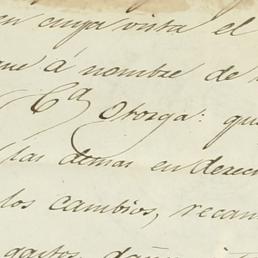 en cuya vista el
que á nombre de
C.ª Otorga: que
las demas en derech
los cambios, recam
gastos, daños